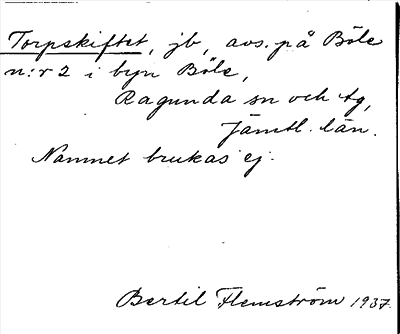 Torpskiftet, jb, avs. på Böle
n:r 2 i byn Böle,
Ragunda sn och tg,
Jämtl. län.
Namnet brukas ej.
Bertil Flemström 1937.